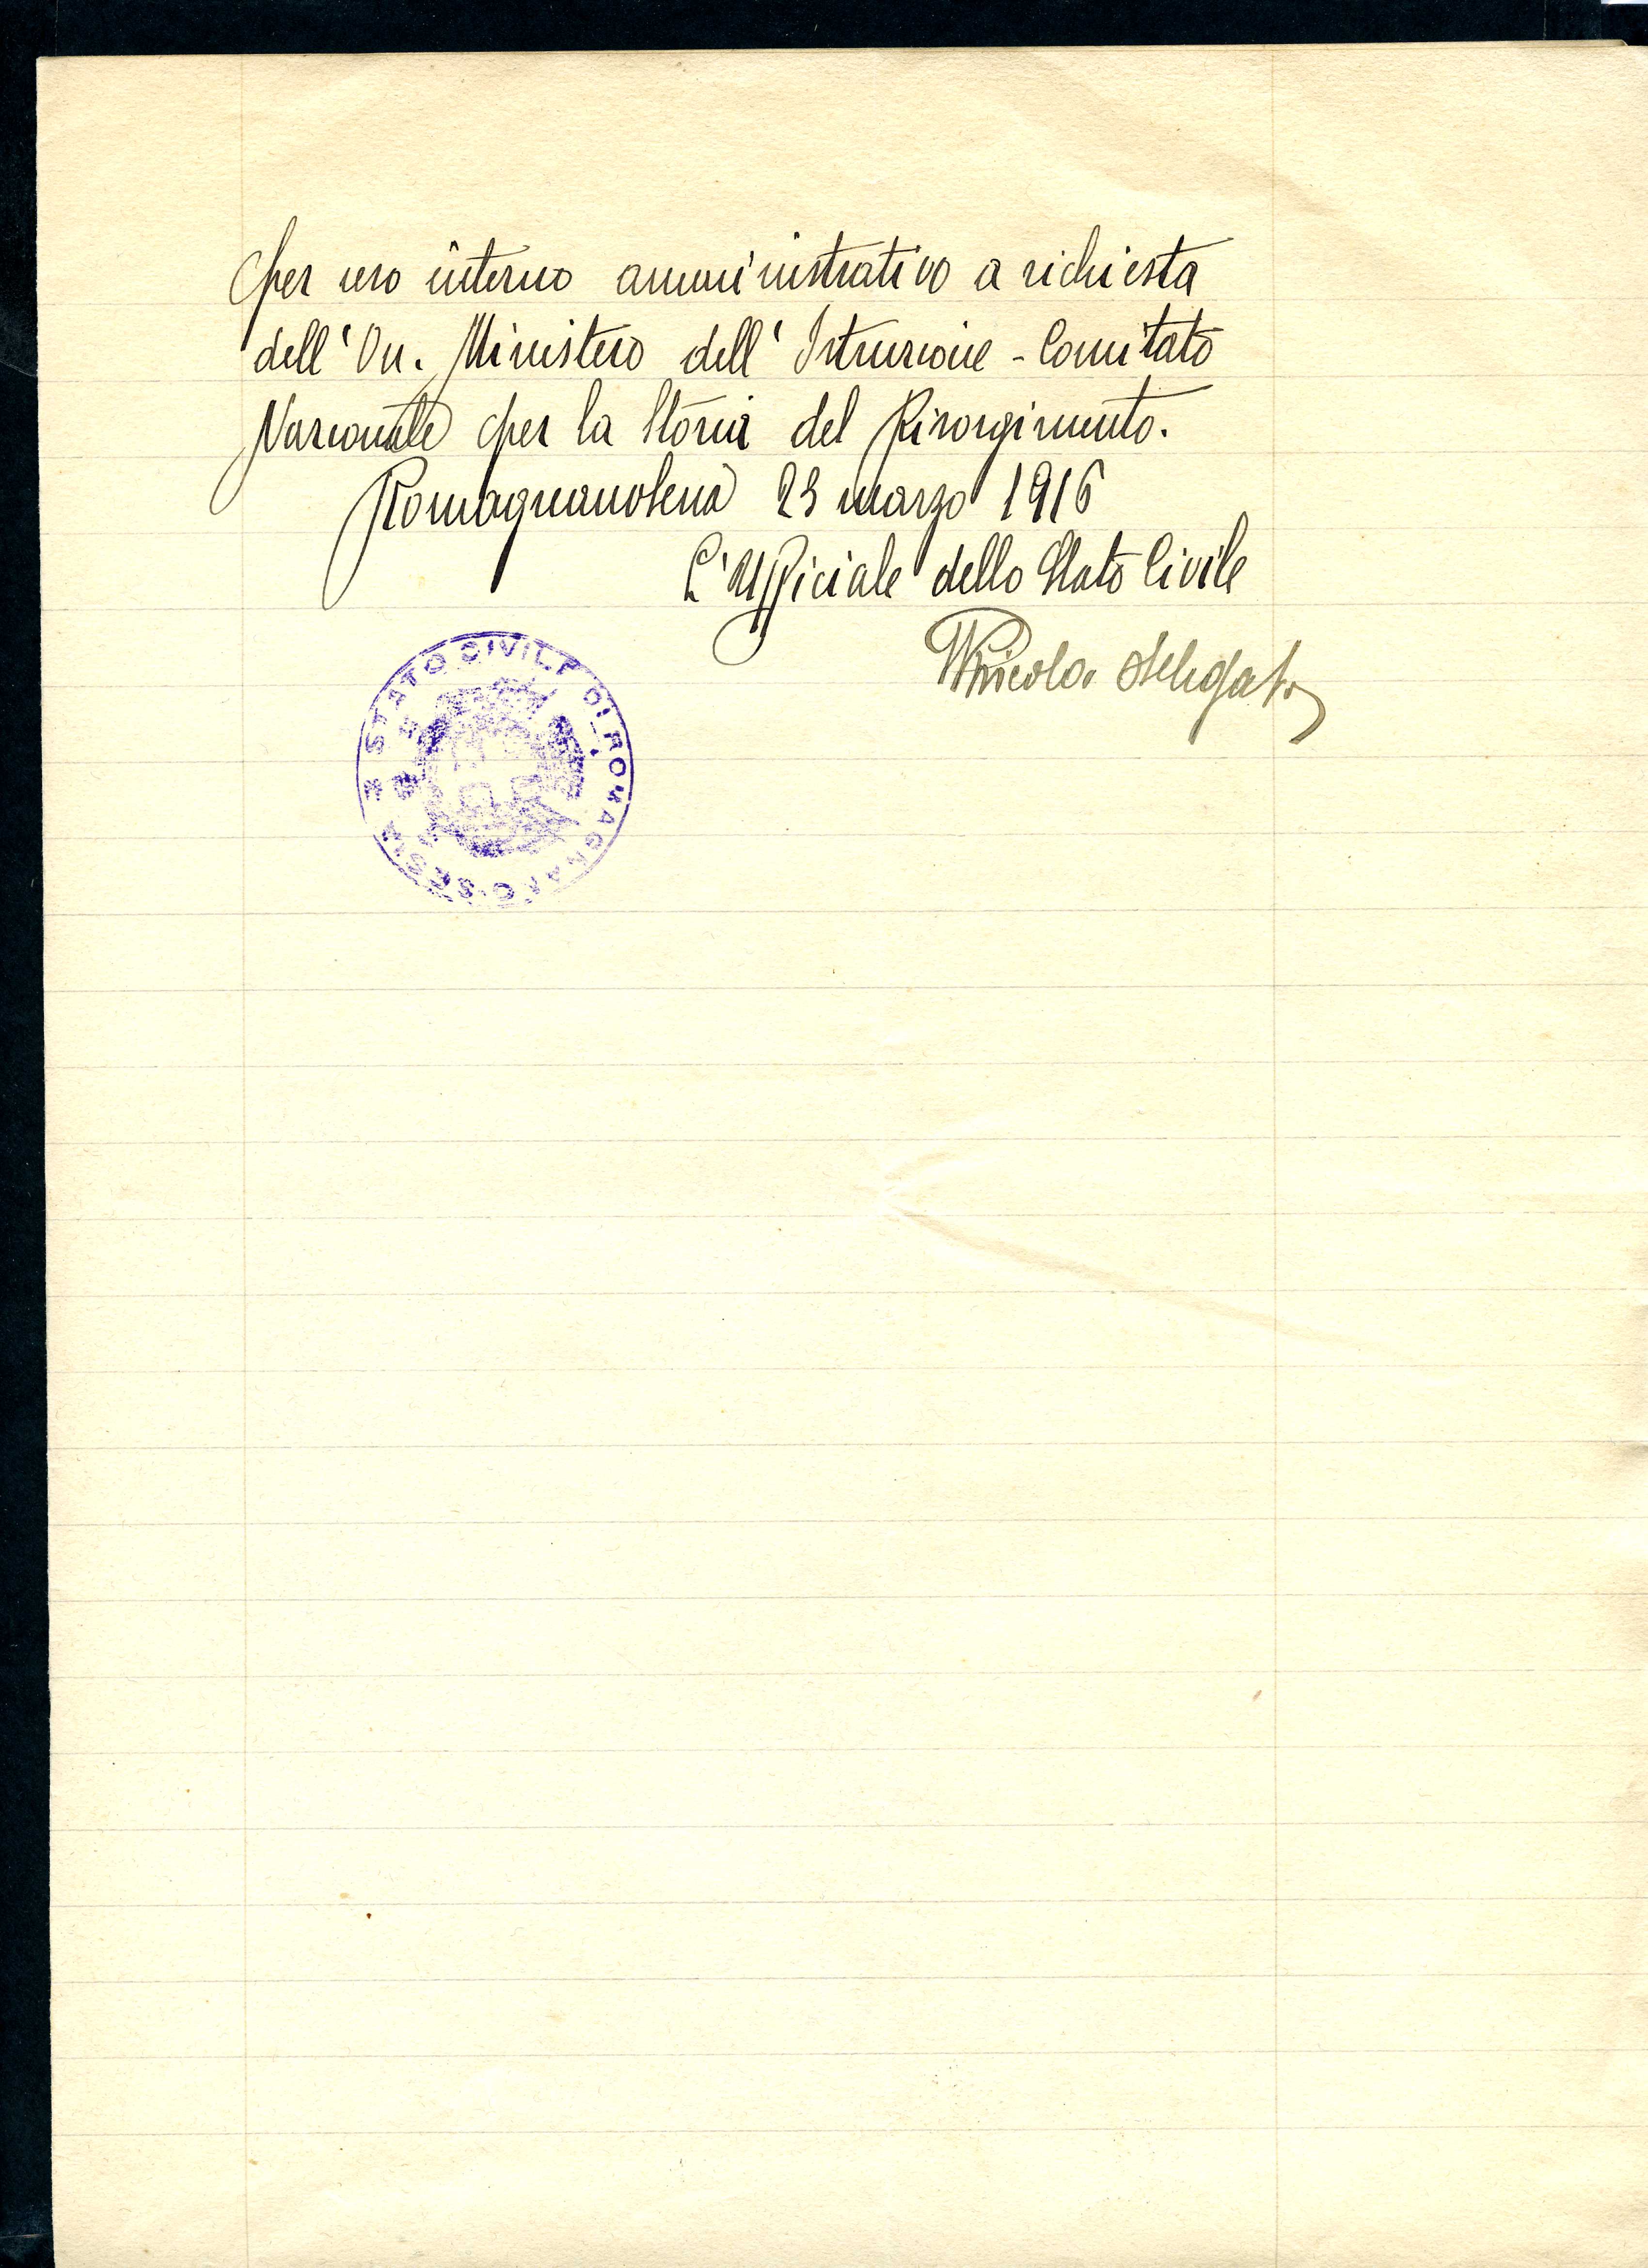 Per uso interno amministrativo a richiesta
dell'On. Ministero dell'Istruzione - Comitato
Nazionale per la Storia del Risorgimento.
Romagnano Sesia 23 marzo 1916
L'Ufficiale dello Stato Civile
delegato
STATO CIVILE DI ROMAGNANO-SESIA